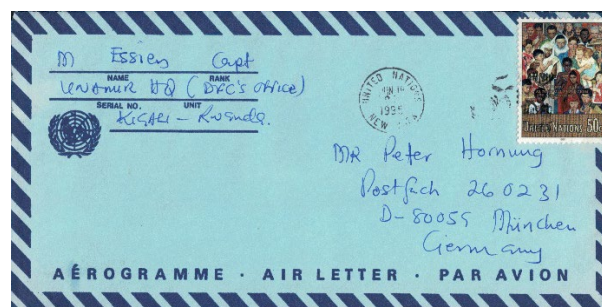 M Essien Capt
NAME RANK
UNAMIR HQ (DFC's office)
SERIAL NO. UNIT
KIGALI - Rwanda.
UNITED NATIONS
JUN
1995
NEW
UNITED NATIONS 50c
MR Peter Hornung
Postfach 26 02 31
D-80059 München
Germany
AÉROGRAMME · AIR LETTER · PAR AVION